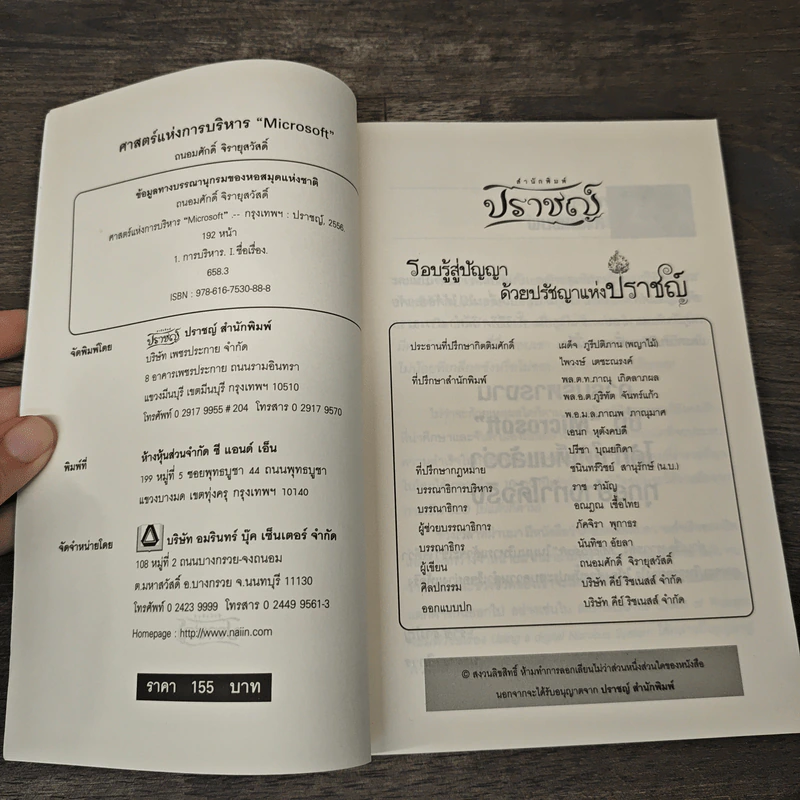 ศาสตร์แห่งการบริหาร “Microsoft”
ถนอมศักดิ์ จิรายุสวัสดิ์
ข้อมูลทางบรรณานุกรมของหอสมุดแห่งชาติ
ถนอมศักดิ์ จิรายุสวัสดิ์
ศาสตร์แห่งการบริหาร “Microsoft” .-- กรุงเทพฯ : ปราชญ์, 2556.
192 หน้า
1. การบริหาร. I.ชื่อเรื่อง.
658.3
ISBN : 978-616-7530-88-8
จัดพิมพ์โดย
ปราชญ์ ปราชญ์ สำนักพิมพ์
บริษัท เพชรประกาย จำกัด
8 อาคารเพชรประกาย ถนนรามอินทรา
แขวงมีนบุรี เขตมีนบุรี กรุงเทพฯ 10510
โทรศัพท์ 0 2917 9955 # 204 โทรสาร 0 2917 9570
พิมพ์ที่
ห้างหุ้นส่วนจำกัด ซี แอนด์ เอ็น
199 หมู่ที่ 5 ซอยพุทธบูชา 44 ถนนพุทธบูชา
แขวงบางมด เขตทุ่งครุ กรุงเทพฯ 10140
จัดจำหน่ายโดย
บริษัท อมรินทร์ บุ๊ค เซ็นเตอร์ จำกัด
108 หมู่ที่ 2 ถนนบางกรวย-จงถนอม
ต.มหาสวัสดิ์ อ.บางกรวย จ.นนทบุรี 11130
โทรศัพท์ 0 2423 9999 โทรสาร 0 2449 9561-3
Homepage : http://www.naiin.com
ราคา 155 บาท
สำนักพิมพ์
ปราชญ์
รอบรู้สู่ปัญญา
ด้วยปรัชญาแห่ง ปราชญ์
ประธานที่ปรึกษากิตติมศักดิ์ เผด็จ ภูรีปติภาน (พญาไม้)
ไพวงษ์ เตชะณรงค์
ที่ปรึกษาสำนักพิมพ์ พล.ต.ท.ภาณุ เกิดลาภผล
พล.อ.ต.ภูริทัต จันทร์แก้ว
พ.อ.ม.ล.ภาณพ ภาณุมาศ
เอนก หุตังคบดี
ปรีชา บุณยกิดา
ที่ปรึกษากฎหมาย ชนินทร์วิชย์ สานุรักษ์ (น.บ.)
บรรณาธิการบริหาร ราช รามัญ
บรรณาธิการ อณภูณ เชื้อไทย
ผู้ช่วยบรรณาธิการ ภัคจิรา พุกาธร
บรรณาธิกร นันทิชา อัยลา
ผู้เขียน ถนอมศักดิ์ จิรายุสวัสดิ์
ศิลปกรรม บริษัท คีย์ ริชเนสส์ จำกัด
ออกแบบปก บริษัท คีย์ ริชเนสส์ จำกัด
© สงวนลิขสิทธิ์ ห้ามทำการลอกเลียนไม่ว่าส่วนหนึ่งส่วนใดของหนังสือ
นอกจากจะได้รับอนุญาตจาก ปราชญ์ สำนักพิมพ์